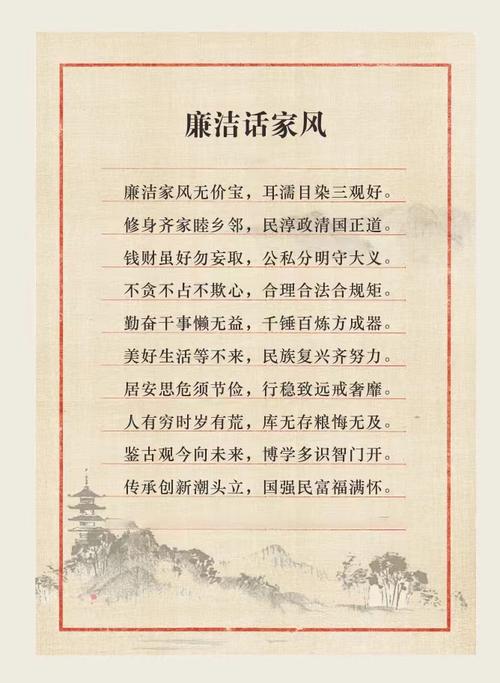 廉洁话家风
廉洁家风无价宝，耳濡目染三观好。
修身齐家睦乡邻，民淳政清国正道。
钱财虽好勿妄取，公私分明守大义。
不贪不占不欺心，合理合法合规矩。
勤奋干事懒无益，千锤百炼方成器。
美好生活等不来，民族复兴齐努力。
居安思危须节俭，行稳致远戒奢靡。
人有穷时岁有荒，库无存粮悔无及。
鉴古观今向未来，博学多识智门开。
传承创新潮头立，国强民富福满怀。